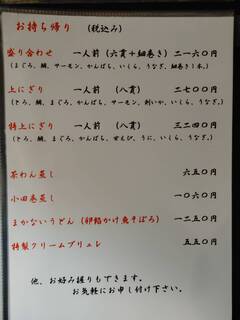 お持ち帰り （税込み）
盛り合わせ 一人前（六貫＋細巻き）二一六〇円
（まぐろ、鯛、サーモン、かんぱち、いくら、うなぎ、細巻き１本。）
上にぎり 一人前 （八貫） 二七〇〇円
（とろ、鯛、まぐろ、かんぱち、サーモン、剣いか、いくら、うなぎ。）
特上にぎり 一人前 （八貫） 三二四〇円
（とろ、鯛、まぐろ、かんぱち、甘えび、うに、いくら、うなぎ。）
茶わん蒸し 六五〇円
小田巻蒸し 一〇六〇円
まかないうどん（卵餡かけ魚そぼろ） 一二五〇円
特製クリームブリュレ 五五〇円
他、お好み握りもできます。
お気軽にお申し付け下さい。